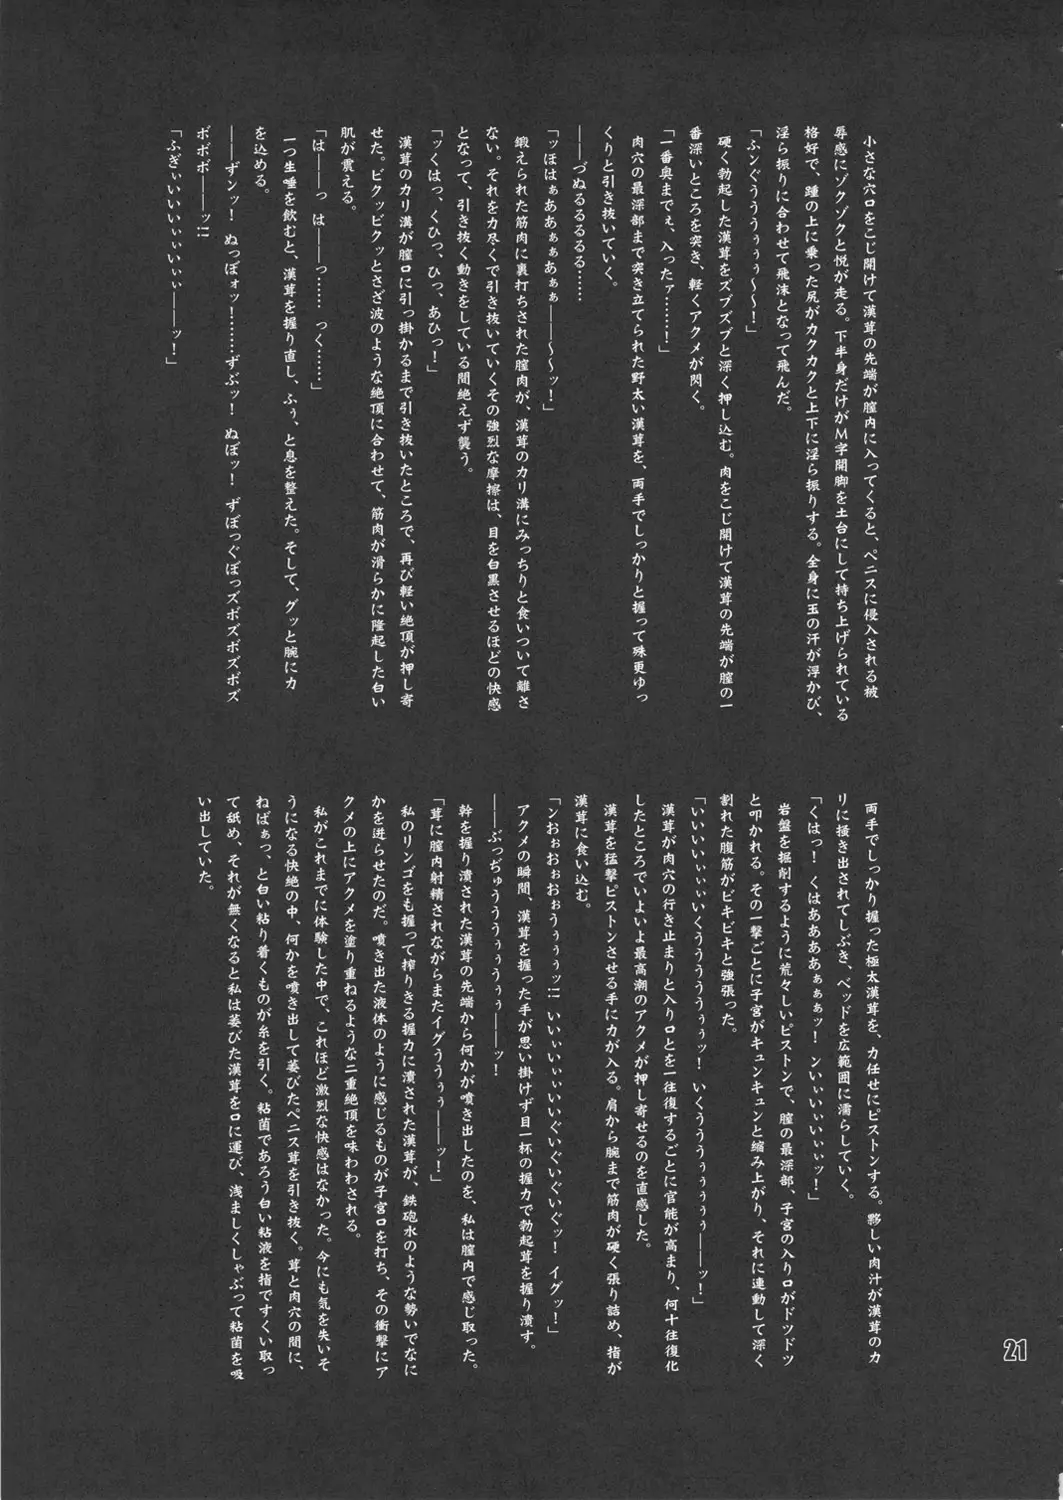 小さな穴口をこじ開けて漢茸の先端が膣内に入ってくると、ペニスに侵入される被
辱感にゾクゾクと悦が走る。下半身だけがM字開脚を土台にして持ち上げられている
格好で、踵の上に乗った尻がカクカクと上下に淫ら振りする。全身に玉の汗が浮かび、
淫ら振りに合わせて飛沫となって飛んだ。
「ふンぐうううぅぅぅ〜〜！」
硬く勃起した漢茸をズブズブと深く押し込む。肉をこじ開けて漢茸の先端が膣の一
番深いところを突き、軽くアクメが閃く。
「一番奥までぇ、入ったァ……！」
肉穴の最深部まで突き立てられた野太い漢茸を、両手でしっかりと握って殊更ゆっ
くりと引き抜いていく。
――づぬるるるるる……
「ッほはぁああぁぁあぁぁ――〜〜ッ！」
鍛えられた筋肉に裏打ちされた膣肉が、漢茸のカリ溝にみっちりと食いついて離さ
ない。それを力尽くで引き抜いていくその強烈な摩擦は、目を白黒させるほどの快感
となって、引き抜く動きをしている間絶えず襲う。
「ッくはっ、くひっ、ひっ、あひっ！」
漢茸のカリ溝が膣口に引っ掛かるまで引き抜いたところで、再び軽い絶頂が押し寄
せた。ビクッビクッとさざ波のような絶頂に合わせて、筋肉が滑らかに隆起した白い
肌が震える。
「は――っ は――っ…… っく……」
一つ生唾を飲むと、漢茸を握り直し、ふぅ、と息を整えた。そして、グッと腕に力
を込める。
――ずンッ！ ぬっぽォッ！……ずぶッ！ ぬぽッ！ ずぼっぐぼっズボズボズボズ
ボボボ――ッ!!
「ふぎぃいいいぃぃいぃぃ――ッ！」
両手でしっかり握った極太漢茸を、力任せにピストンする。夥しい肉汁が漢茸のカ
リに掻き出されてしぶき、ベッドを広範囲に濡らしていく。
「くはっ！ くはああああぁぁぁッ！ ンいぃいぃいぃぃッ！」
岩盤を掘削するように荒々しいピストンで、膣の最深部、子宮の入り口がドツドツ
と叩かれる。その一撃ごとに子宮がキュンキュンと縮み上がり、それに連動して深く
割れた腹筋がビキビキと強張った。
「いいいいぃぃいぃいくうううううぅぅッ！ いくうううぅぅぅぅぅ――ッ！」
漢茸が肉穴の行き止まりと入り口とを一往復するごとに官能が高まり、何十往復化
したところでいよいよ最高潮のアクメが押し寄せるのを直感した。
漢茸を猛撃ピストンさせる手に力が入る。肩から腕まで筋肉が硬く張り詰め、指が
漢茸に食い込む。
「ンおぉおぉおぉうぅぅぅッ!! いいぃいぃぃいいぐいぐいぐッ！ イグッ！」
アクメの瞬間、漢茸を握った手が思い掛けず目一杯の握力で勃起茸を握り潰す。
――ぶっぢゅうううぅぅうぅぅ――ッ！
幹を握り潰された漢茸の先端から何かが噴き出したのを、私は膣内で感じ取った。
「茸に膣内射精されながらまたイグうううぅぅ――ッ！」
私のリンゴをも握って搾りきる握力に潰された漢茸が、鉄砲水のような勢いでなに
かを迸らせたのだ。噴き出た液体のように感じるものが子宮口を打ち、その衝撃にア
クメの上にアクメを塗り重ねるような二重絶頂を味わわされる。
私がこれまでに体験した中で、これほど激烈な快感はなかった。今にも気を失いそ
うになる快絶の中、何かを噴き出して萎びたペニス茸を引き抜く。茸と肉穴の間に、
ねばぁっ、と白い粘り着くものが糸を引く。粘菌であろう白い粘液を指ですくい取っ
て舐め、それが無くなると私は萎びた漢茸を口に運び、浅ましくしゃぶって粘菌を吸
い出していた。
21